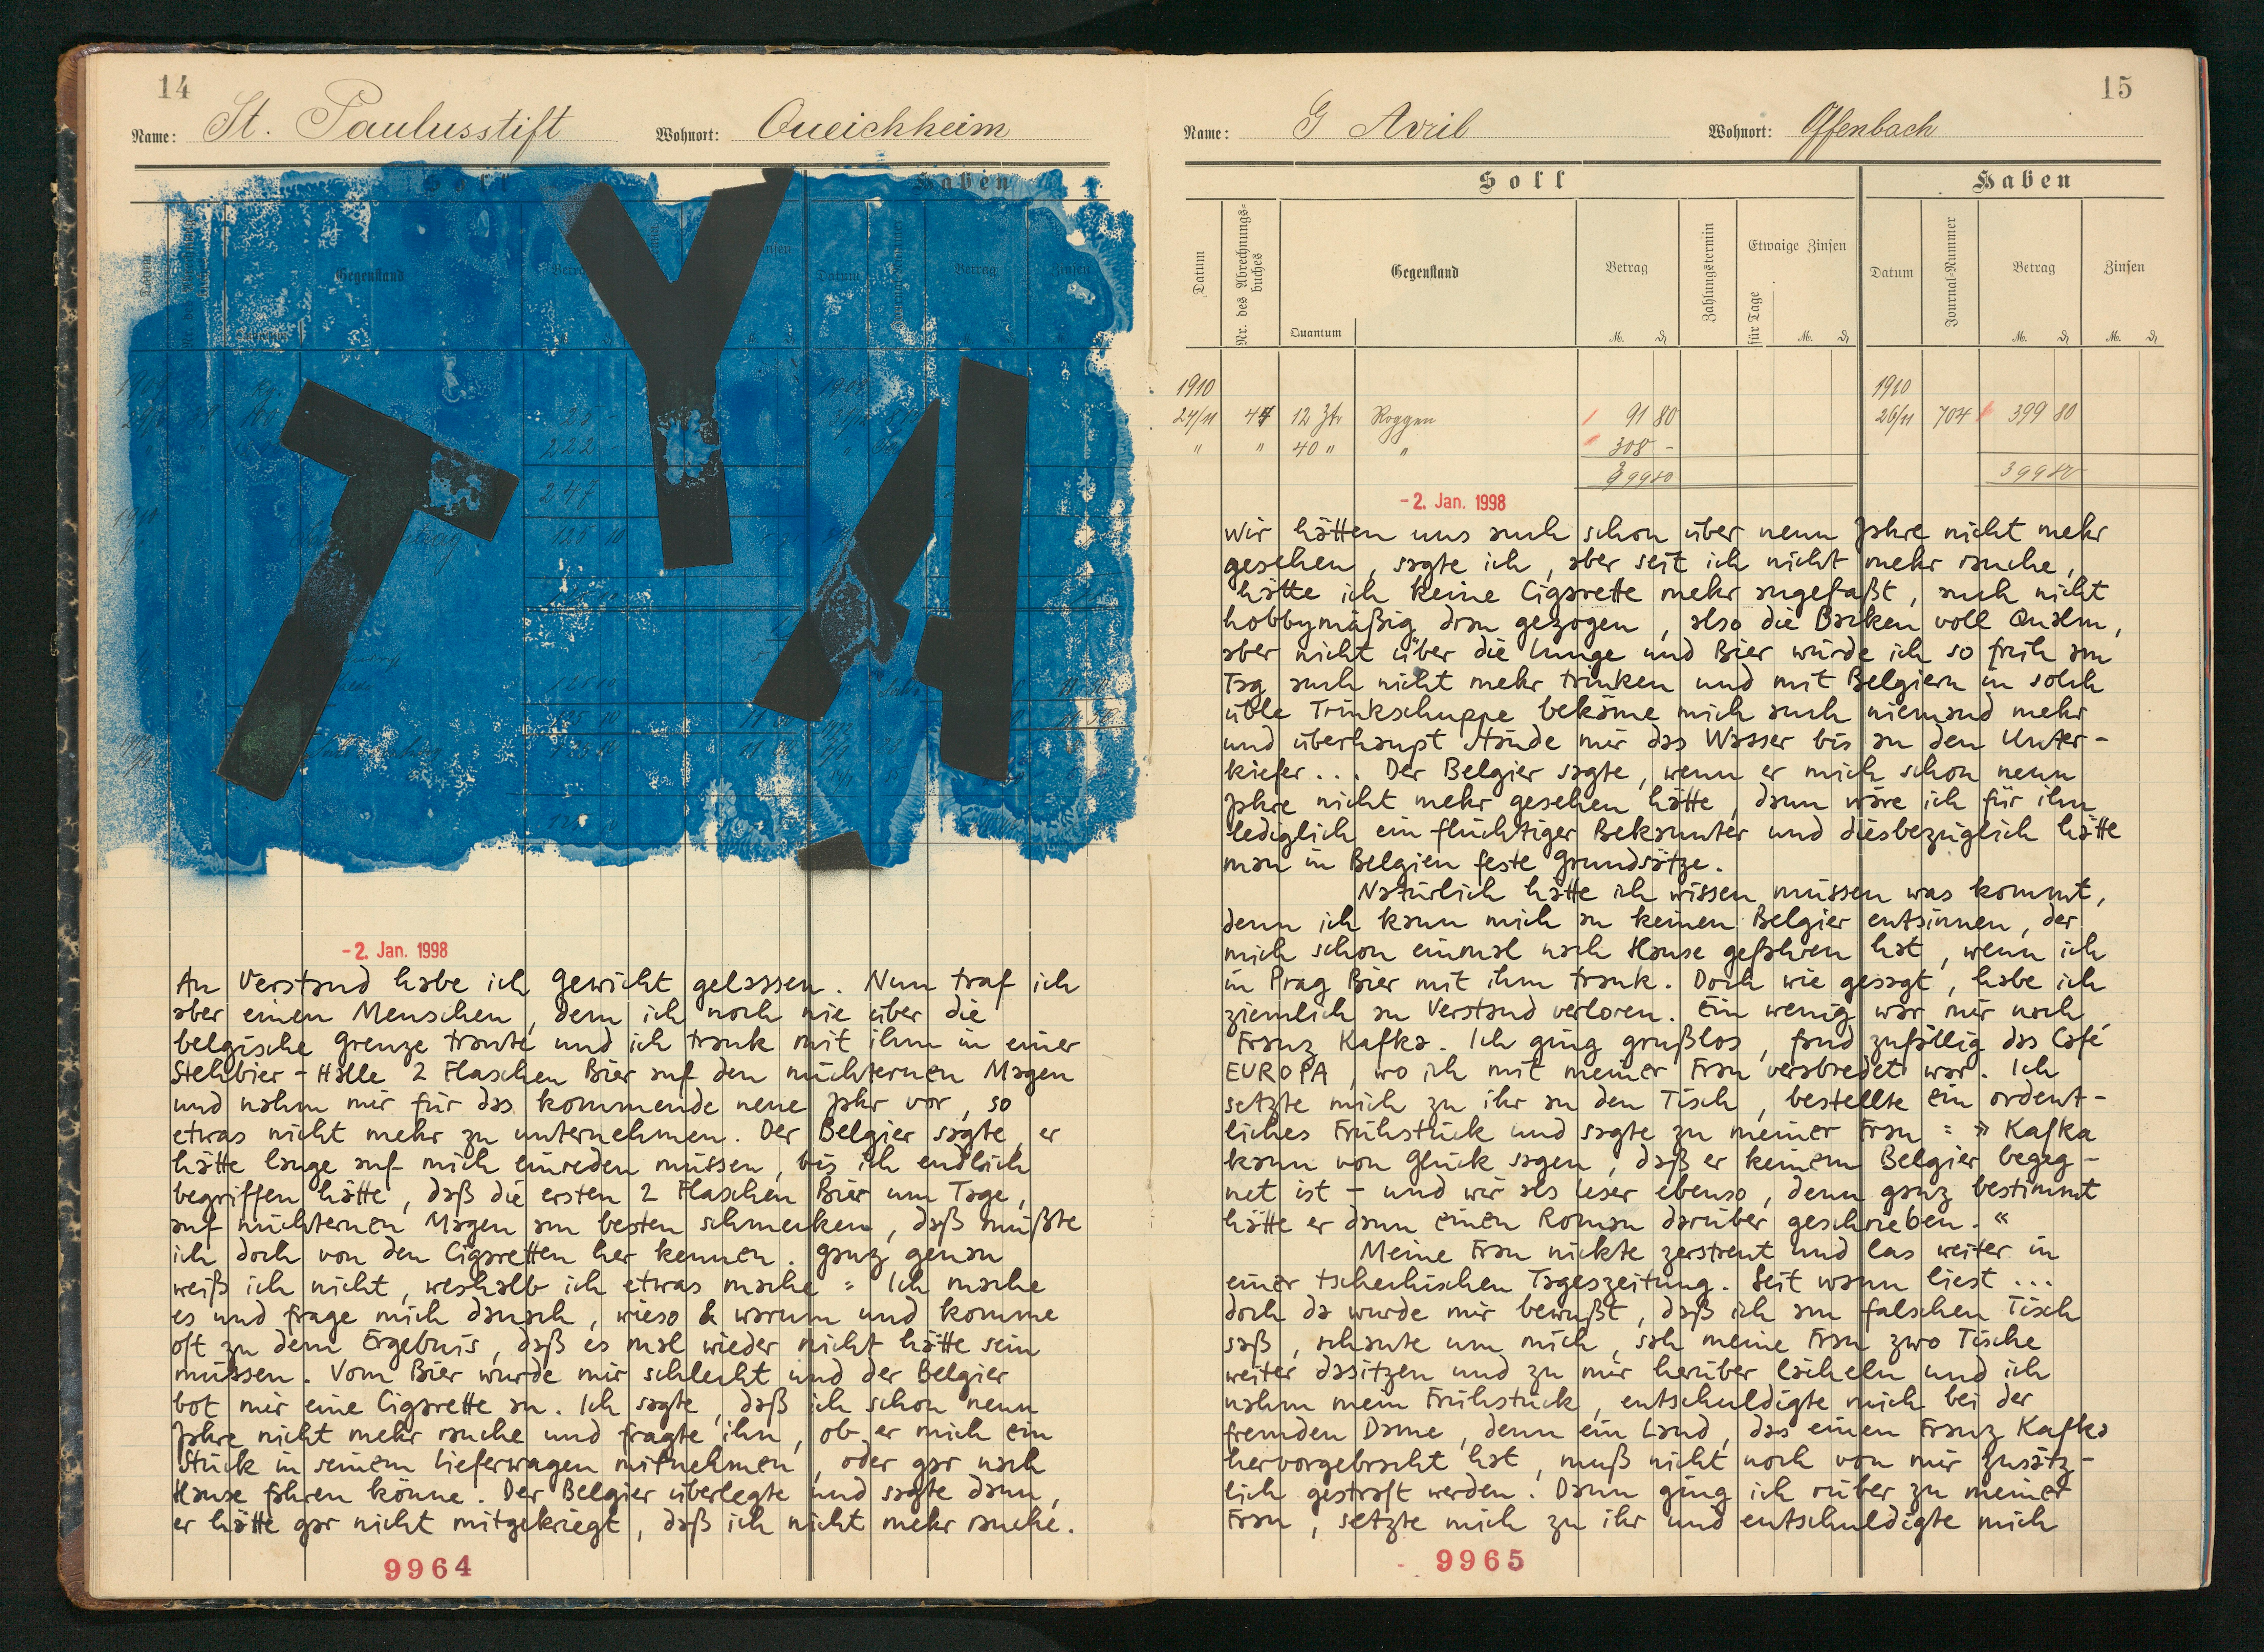 14
Name: St. Paulusstift Wohnort: Queichheim
Soll Haben
Gegenstand Betrag Datum Betrag Zinsen
Y
T
A
25 -
222
247
125 10
-2. Jan. 1998
An Verstand habe ich Gewicht gelassen. Nun traf ich
aber einen Menschen, dem ich noch nie über die
belgische Grenze traute und ich trank mit ihm in einer
Stehbier-Halle 2 Flaschen Bier auf den nüchternen Magen
und nahm mir für das kommende neue Jahr vor, so
etwas nicht mehr zu unternehmen. Der Belgier sagte, er
hätte lange auf mich einreden müssen, bis ich endlich
begriffen hätte, daß die ersten 2 Flaschen Bier um Tage,
auf nüchternen Magen am besten schmecken, daß müßte
ich doch von den Cigaretten her kennen. Ganz genau
weiß ich nicht, weshalb ich etwas mache = Ich mache
es und frage mich danach, wieso & warum und komme
oft zu dem Ergebnis, daß es mal wieder nicht hätte sein
müssen. Vom Bier wurde mir schlecht und der Belgier
bot mir eine Cigarette an. Ich sagte, daß ich schon neun
Jahre nicht mehr rauche und fragte ihn, ob er mich ein
Stück in seinem Lieferwagen mitnehmen, oder gar nach
Hause fahren könne. Der Belgier überlegte und sagte dann,
er hätte gar nicht mitgekriegt, daß ich nicht mehr rauche.
9964
15
Name: G Avril Wohnort: Offenbach
Soll Haben
Datum Nr. des Abrechnungs-buches Quantum Gegenstand Betrag Zahlungstermin Etwaige Zinsen für Tage Datum Journal-Nummer Betrag Zinsen
M. ₰ M. ₰ M. ₰ M. ₰
1910 1910
24/11 47 12 Ztr Roggen 91 80 26/11 704 399 80
" " 40 " " 308 -
399 80 399 80
-2. Jan. 1998
Wir hätten uns auch schon über neun Jahre nicht mehr
gesehen, sagte ich, aber seit ich nicht mehr rauche,
hätte ich keine Cigarette mehr angefaßt, auch nicht
hobbymäßig dran gezogen, also die Backen voll Qualm,
aber nicht über die Lunge und Bier würde ich so früh am
Tag auch nicht mehr trinken und mit Belgiern in solch
üble Trinkschuppe bekäme mich auch niemand mehr
und überhaupt stünde mir das Wasser bis an den Unter-
kiefer... Der Belgier sagte, wenn er mich schon neun
Jahre nicht mehr gesehen hätte, dann wäre ich für ihn
lediglich ein flüchtiger Bekannter und diesbezüglich hätte
man in Belgien feste Grundsätze.
Natürlich hätte ich wissen müssen was kommt,
denn ich kann mich an keinen Belgier entsinnen, der
mich schon einmal nach Hause gefahren hat, wenn ich
in Prag Bier mit ihm trank. Doch wie gesagt, habe ich
ziemlich an Verstand verloren. Ein wenig war mir nach
Franz Kafka. Ich ging grußlos, fand zufällig das Café
EUROPA, wo ich mit meiner Frau verabredet war. Ich
setzte mich zu ihr an den Tisch, bestellte ein ordent-
liches Frühstück und sagte zu meiner Frau = » Kafka
kann von Glück sagen, daß er keinem Belgier begeg-
net ist – und wir als Leser ebenso, denn ganz bestimmt
hätte er dann einen Roman darüber geschrieben. «
Meine Frau nickte zerstreut und las weiter in
einer tschechischen Tageszeitung. Seit wann liest ...
doch da wurde mir bewußt, daß ich am falschen Tisch
saß, schaute um mich, sah meine Frau zwo Tische
weiter dasitzen und zu mir herüber lächeln und ich
nahm mein Frühstück, entschuldigte mich bei der
fremden Dame, denn ein Land, das einen Franz Kafka
hervorgebracht hat, muß nicht noch von mir zusätz-
lich gestraft werden. Dann ging ich rüber zu meiner
Frau, setzte mich zu ihr und entschuldigte mich
9965